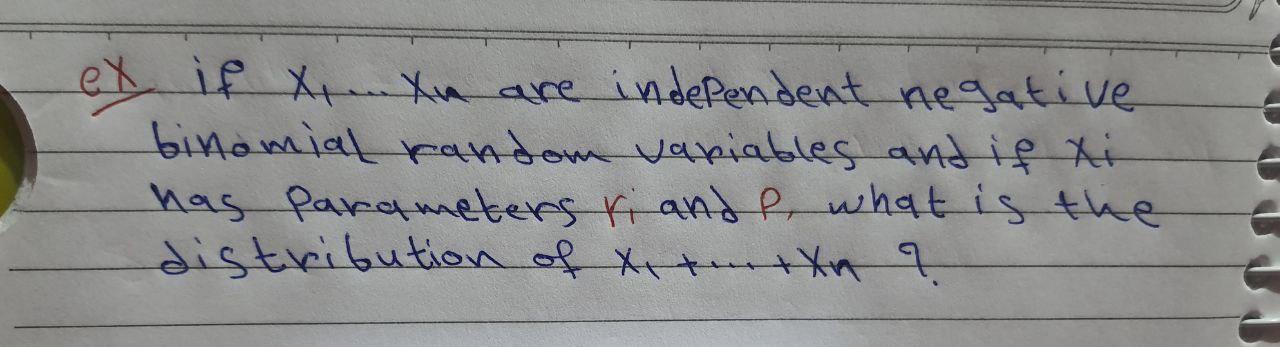 ex if X1 ... Xn are independent negative
binomial random variables and if Xi
has Parameters ri and P, what is the
distribution of X1 + ... + Xn ?